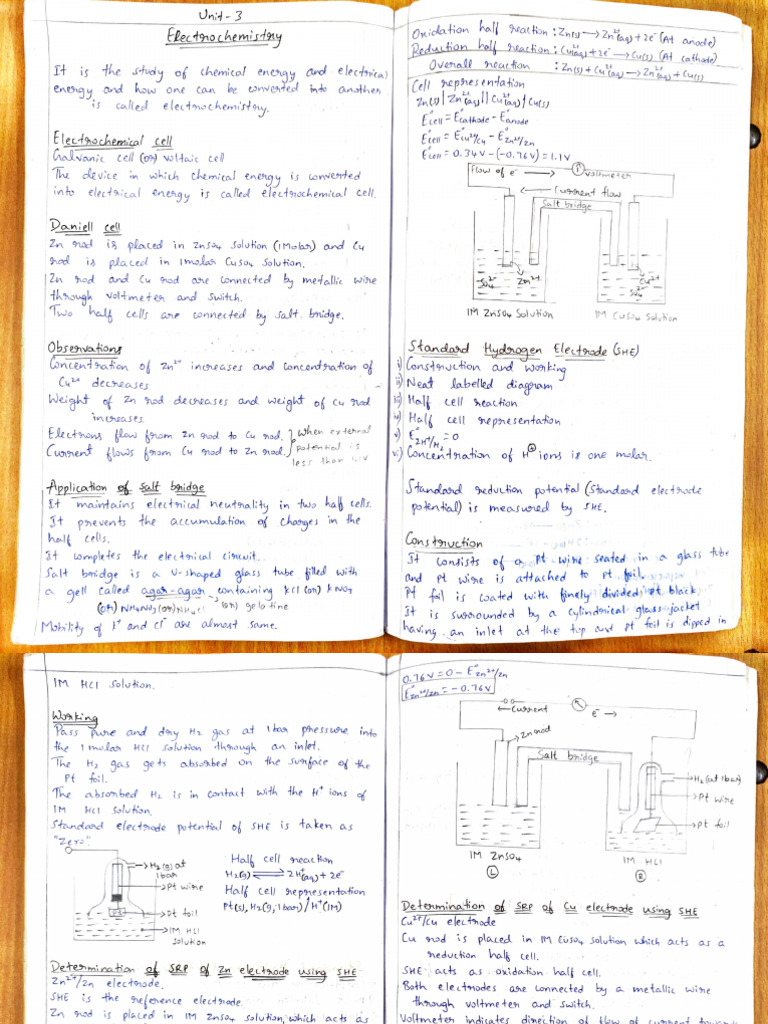 Unit-3
Electrochemistry
It is the study of chemical energy and electrical
energy and how one can be converted into another
is called electrochemistry.
Electrochemical cell
Galvanic cell (or) voltaic cell
The device in which chemical energy is converted
into electrical energy is called electrochemical cell.
Daniell cell
Zn rod is placed in ZnSO4 solution (1Molar) and Cu
rod is placed in 1molar CuSO4 solution.
Zn rod and Cu rod are connected by metallic wire
through voltmeter and switch.
Two half cells are connected by salt bridge.
Observations
Concentration of Zn²⁺ increases and concentration of
Cu²⁺ decreases
Weight of Zn rod decreases and weight of Cu rod
increases
Electrons flow from Zn rod to Cu rod.
Current flows from Cu rod to Zn rod.
when external
potential is
less than 1.1V
Application of Salt bridge
It maintains electrical neutrality in two half cells.
It prevents the accumulation of charges in the
half cells.
It completes the electrical circuit.
Salt bridge is a U-shaped glass tube filled with
a gell called agar-agar containing KCl (or) KNO3
(or) NH4NO3 (or) NH4Cl (or) gelatine
Mobility of K⁺ and Cl⁻ are almost same.
Oxidation half reaction : Zn(s) → Zn²⁺(aq) + 2e⁻ (At anode)
Reduction half reaction : Cu²⁺(aq) + 2e⁻ → Cu(s) (At cathode)
Overall reaction : Zn(s) + Cu²⁺(aq) → Zn²⁺(aq) + Cu(s)
Cell representation
Zn(s) | Zn²⁺(aq) || Cu²⁺(aq) | Cu(s)
E°cell = E°cathode - E°anode
E°cell = E°Cu²⁺/Cu - E°Zn²⁺/Zn
E°cell = 0.34V - (-0.76V) = 1.1V
Flow of e⁻ → voltmeter
← Current flow
Salt bridge
SO4²⁻ Zn²⁺ Cu²⁺ SO4²⁻
1M ZnSO4 Solution 1M CuSO4 Solution
Standard Hydrogen Electrode (SHE)
i) Construction and working
ii) Neat labelled diagram
iii) Half cell reaction
iv) Half cell representation
v) E°2H⁺/H2 = 0
vi) Concentration of H⊕ ions is one molar.
Standard reduction potential (Standard electrode
potential) is measured by SHE.
Construction
It consists of a Pt wire seated in a glass tube
and Pt wire is attached to Pt foil.
Pt foil is coated with finely divided Pt black.
It is surrounded by a cylindrical glass jacket
having an inlet at the top and Pt foil is dipped in
1M HCl solution.
Working
Pass pure and dry H2 gas at 1bar pressure into
the 1molar HCl solution through an inlet.
The H2 gas gets absorbed on the surface of the
Pt foil.
The absorbed H2 is in contact with the H⁺ ions of
1M HCl solution.
Standard electrode potential of SHE is taken as
"Zero"
H2(g) at
1bar
Pt wire
Pt foil
1M HCl
solution
Half cell reaction
H2(g) ⇌ 2H⁺(aq) + 2e⁻
Half cell representation
Pt(s), H2(g, 1bar) / H⁺(1M)
Determination of SRP of Zn electrode using SHE
Zn²⁺/Zn electrode.
SHE is the reference electrode.
Zn rod is placed in 1M ZnSO4 solution, which acts as
0.76V = 0 - E°Zn²⁺/Zn
E°Zn²⁺/Zn = -0.76V
← Current e⁻ →
Zn rod
Salt bridge
H2 (at 1bar)
Pt wire
Pt foil
1M ZnSO4 1M HCl
L R
Determination of SRP of Cu electrode using SHE
Cu²⁺/Cu electrode
Cu rod is placed in 1M CuSO4 solution which acts as a
reduction half cell.
SHE acts as oxidation half cell.
Both electrodes are connected by a metallic wire
through voltmeter and switch.
Voltmeter indicates direction of flow of current toward